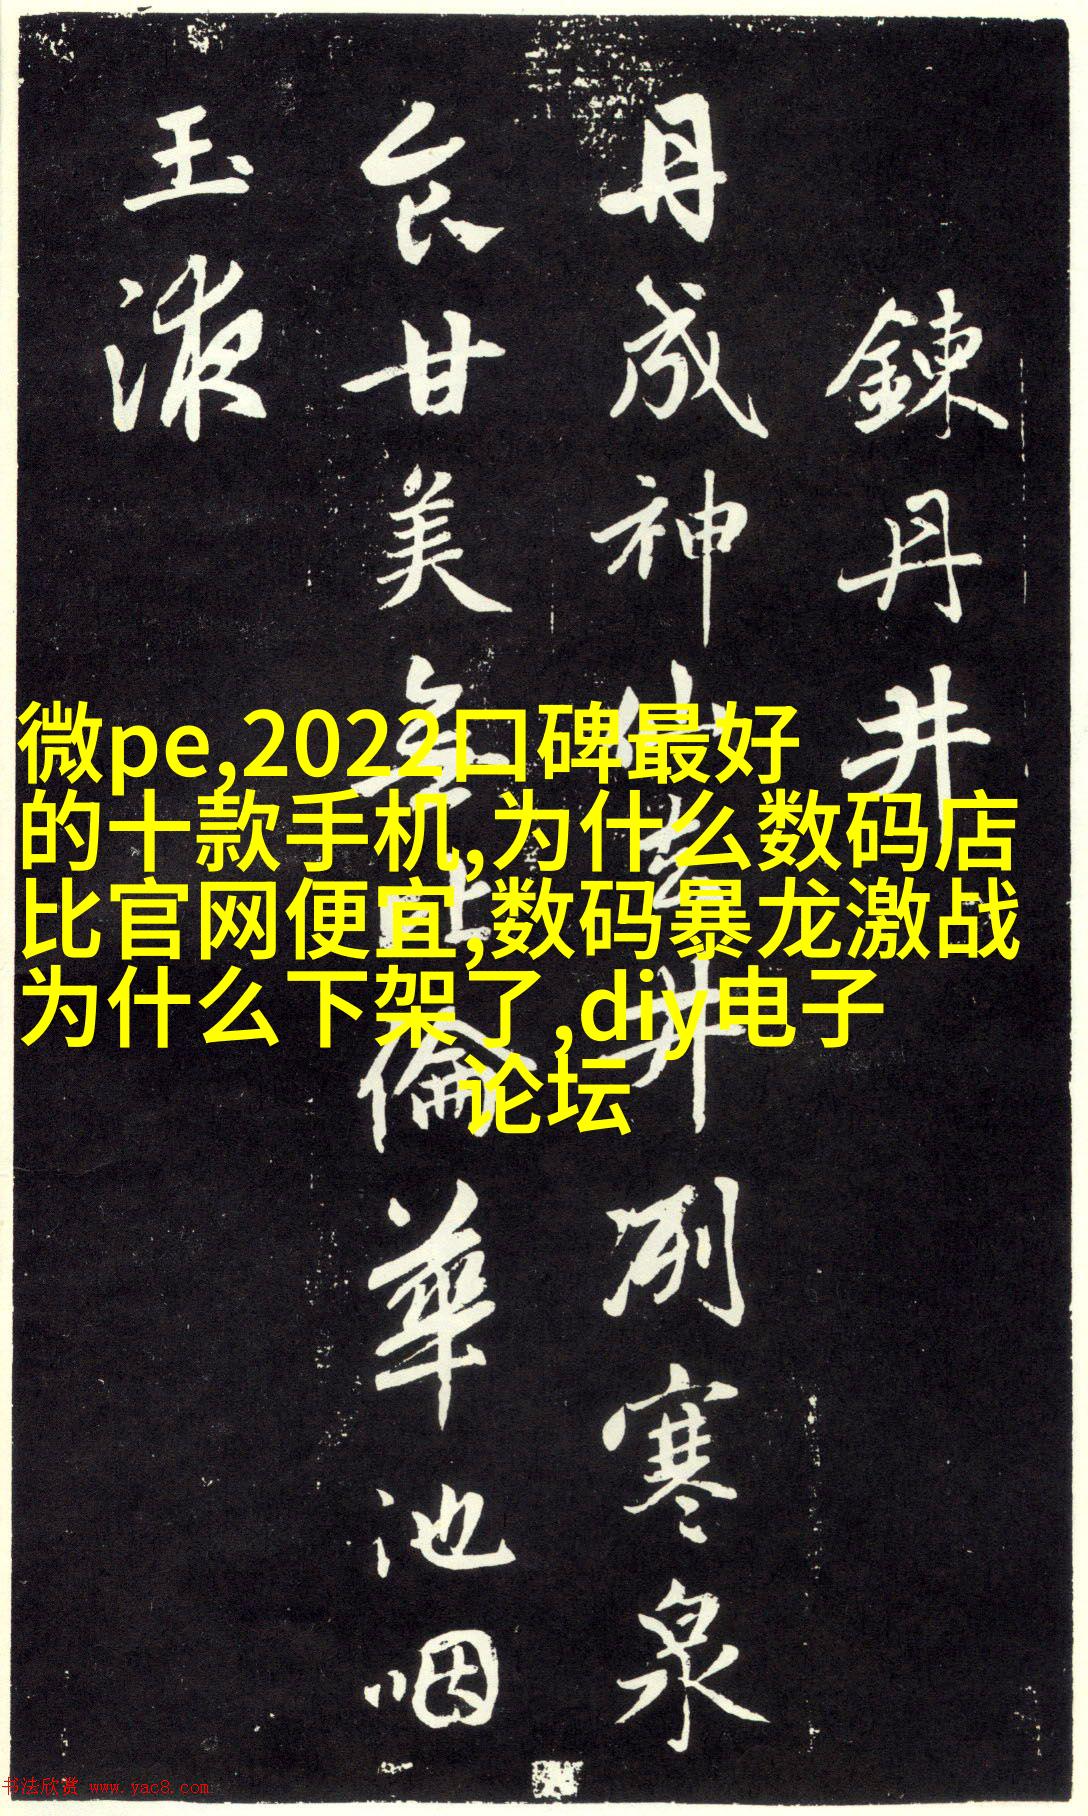 鍊丹井
丹成神仙去井冽寒泉
食甘美無比倫華池咽
玉液
微pe,2022口碑最好
的十款手机,为什么数码店
比官网便宜,数码暴龙激战
为什么下架了,diy电子
论坛
书法欣赏 www.yac8.com